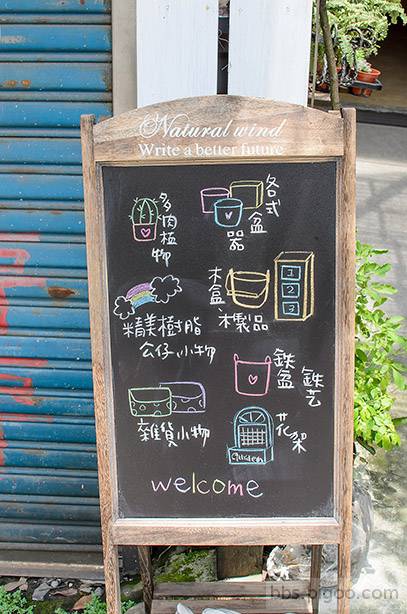 Natural wind
Write a better future
多肉植物
各式
盆
器
木盒
木製品
1
2
3
精美樹脂
公仔小物
鉄盆
鉄艺
雜貨小物
花架
Garden
welcome
bbs.bigoo.com